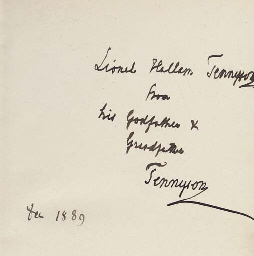 Lionel Hallam Tennyson
from
his Godfather &
Grandfather
Tennyson
Dec 1889